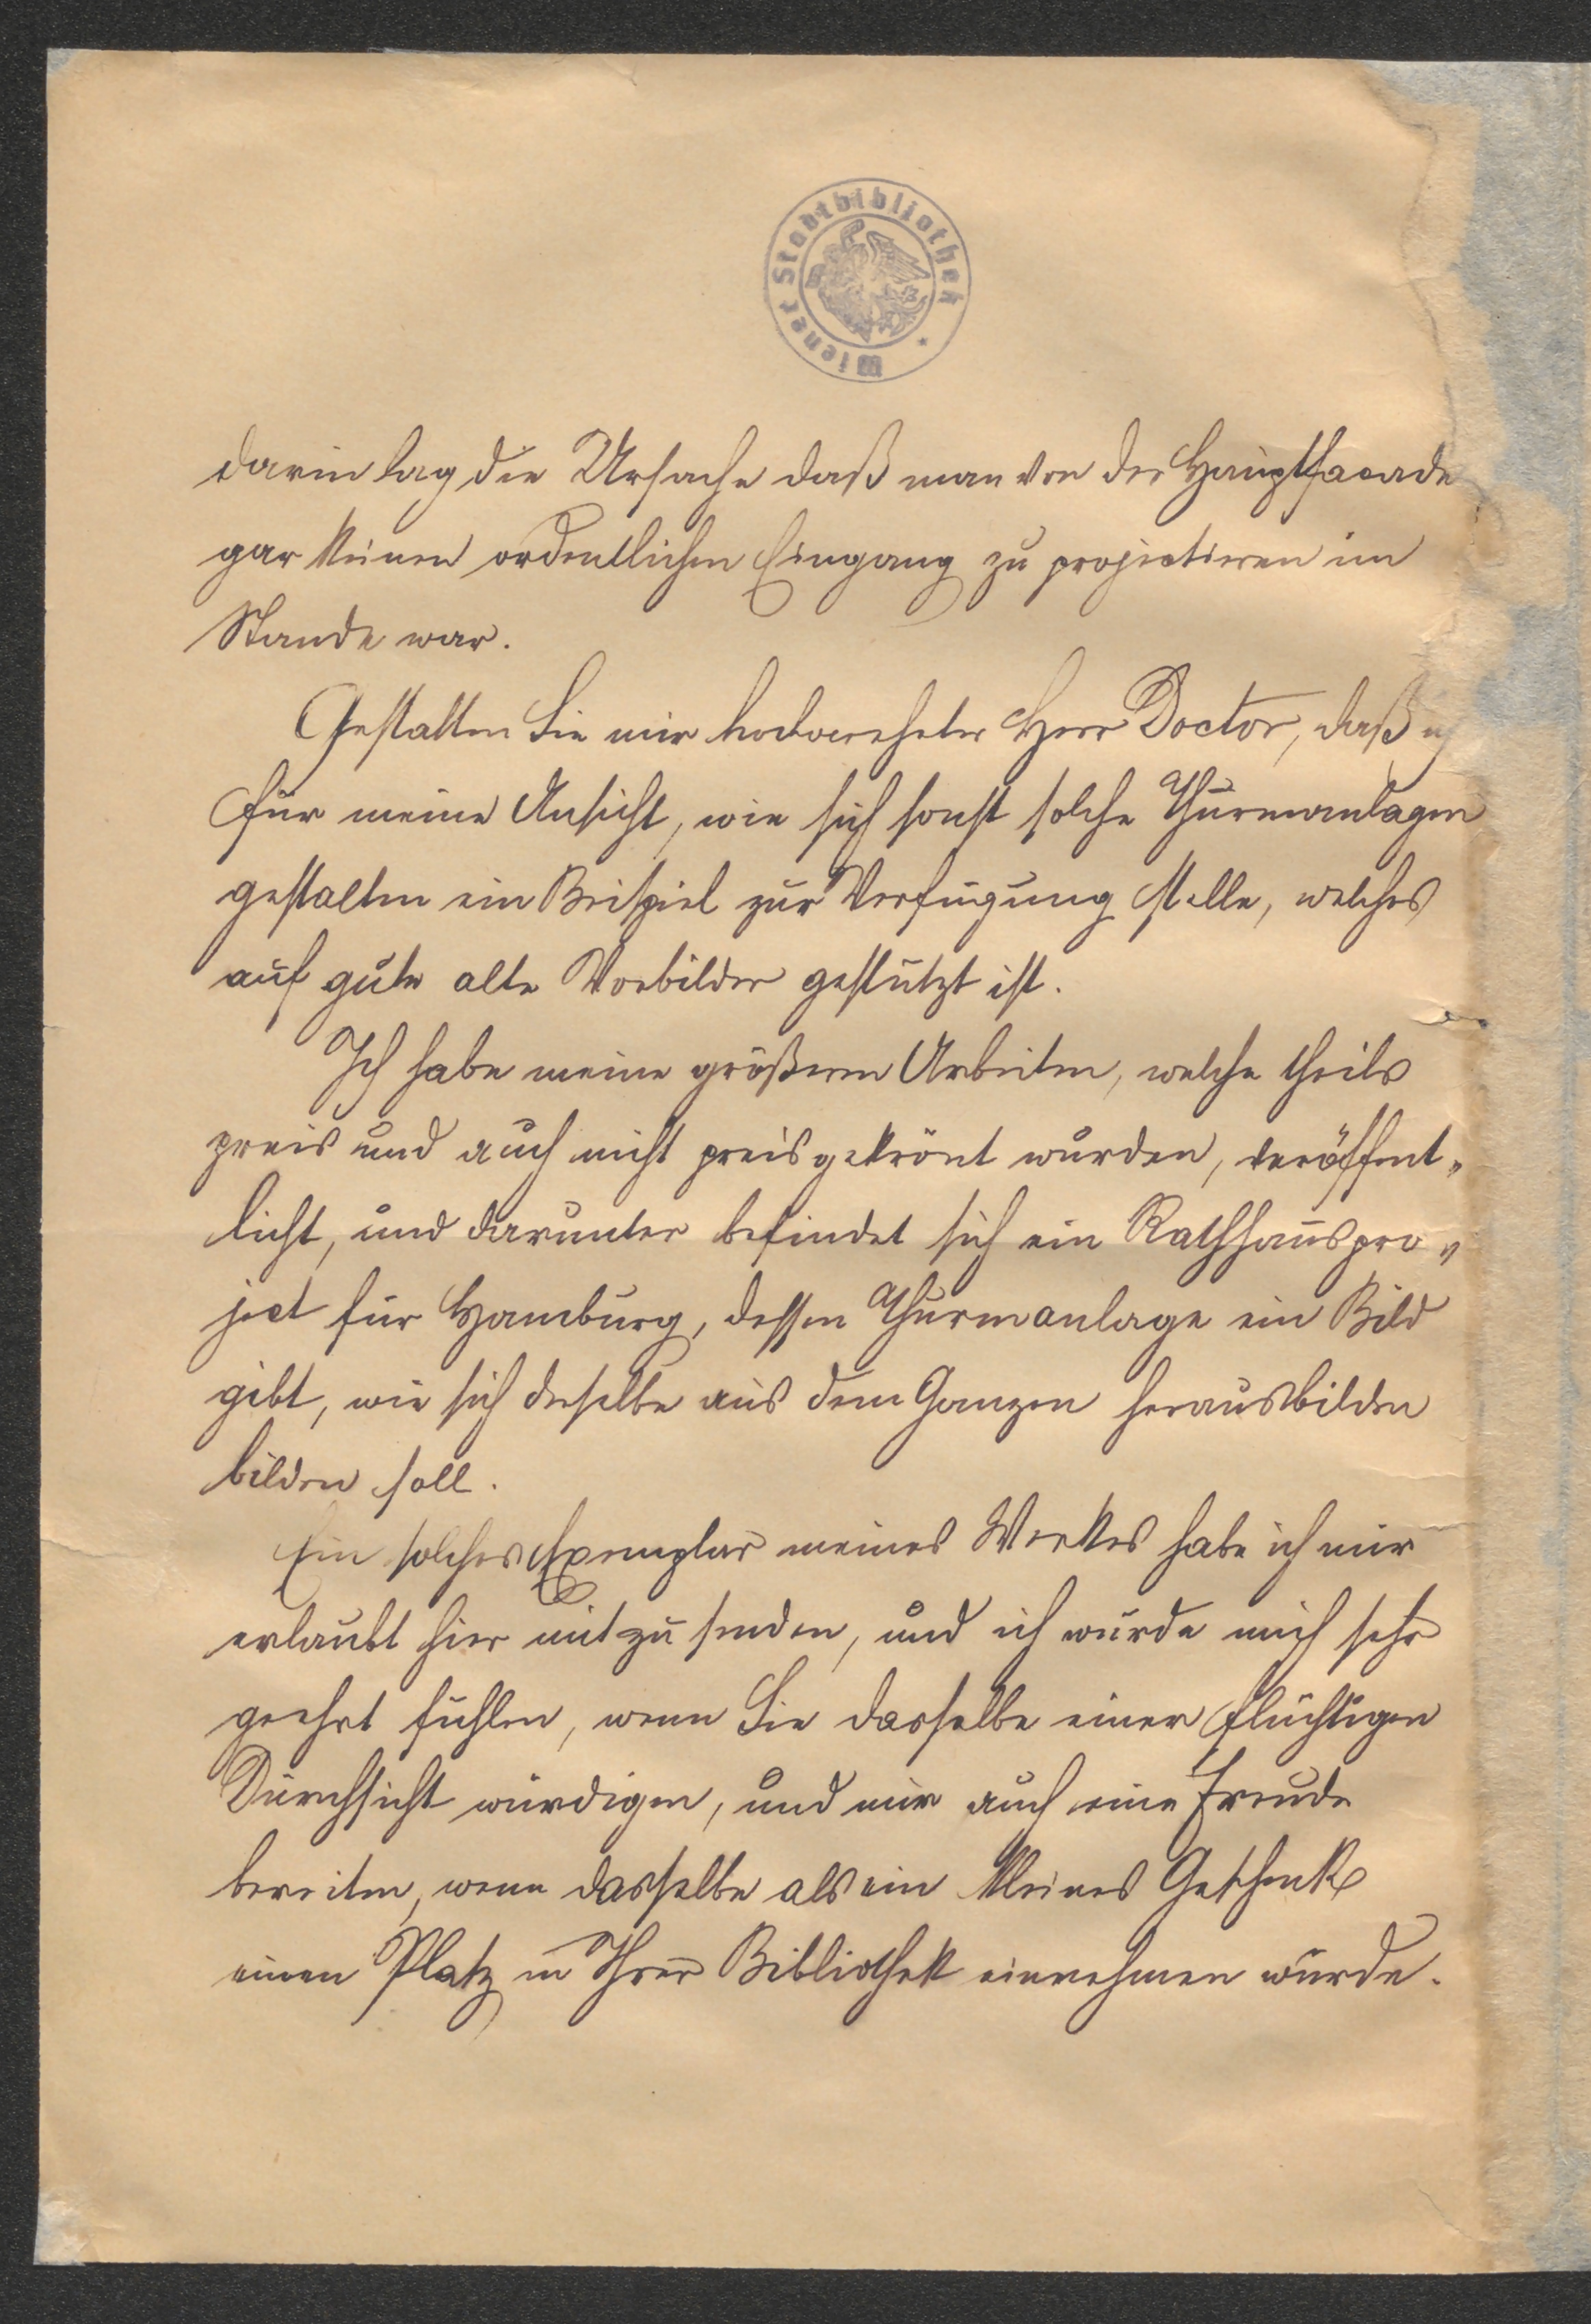 Wiener Stadtbibliothek *
darin lag die Ursache daß man von der Hauptfacade
gar keinen ordentlichen Eingang zu projectieren im
Stande war.
Gestatten Sie mir hochverehrter Herr Doctor, daß
für meine Ansicht, wie sich sonst solche Thurmanlagen
gestalten ein Beispiel zur Verfügung stelle, welches
auf gute alte Vorbilder gestützt ist.
Ich habe meine größeren Arbeiten, welche theils
preis und auch nicht preisgekrönt wurden, veröffent„
licht, und darunter befindet sich ein Rathhauspro„
ject für Hamburg, dessen Thurmanlage ein Bild
gibt, wie sich dieselbe aus dem Ganzen herausbilden
bilden soll.
Ein solches Exemplar meines Werkes habe ich mir
erlaubt hier mitzusenden, und ich würde mich sehr
geehrt fühlen, wenn Sie dasselbe einer flüchtigen
Durchsicht würdigen, und mir auch eine Freude
bereiten, wenn dasselbe als ein kleines Geschenk
einen Platz in Ihrer Bibliothek einnehmen würde.